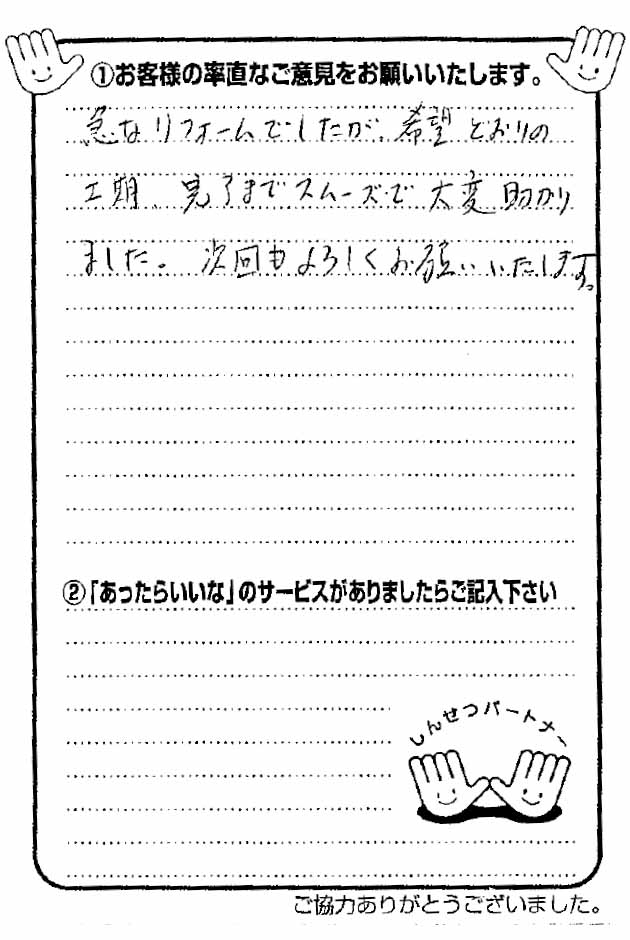 ①お客様の率直なご意見をお願いいたします。
急なリフォームでしたが、希望どおりの
工期、完了までスムーズで大変助かり
ました。次回もよろしくお願いいたします。
②「あったらいいな」のサービスがありましたらご記入下さい
しんせつパートナー
ご協力ありがとうございました。